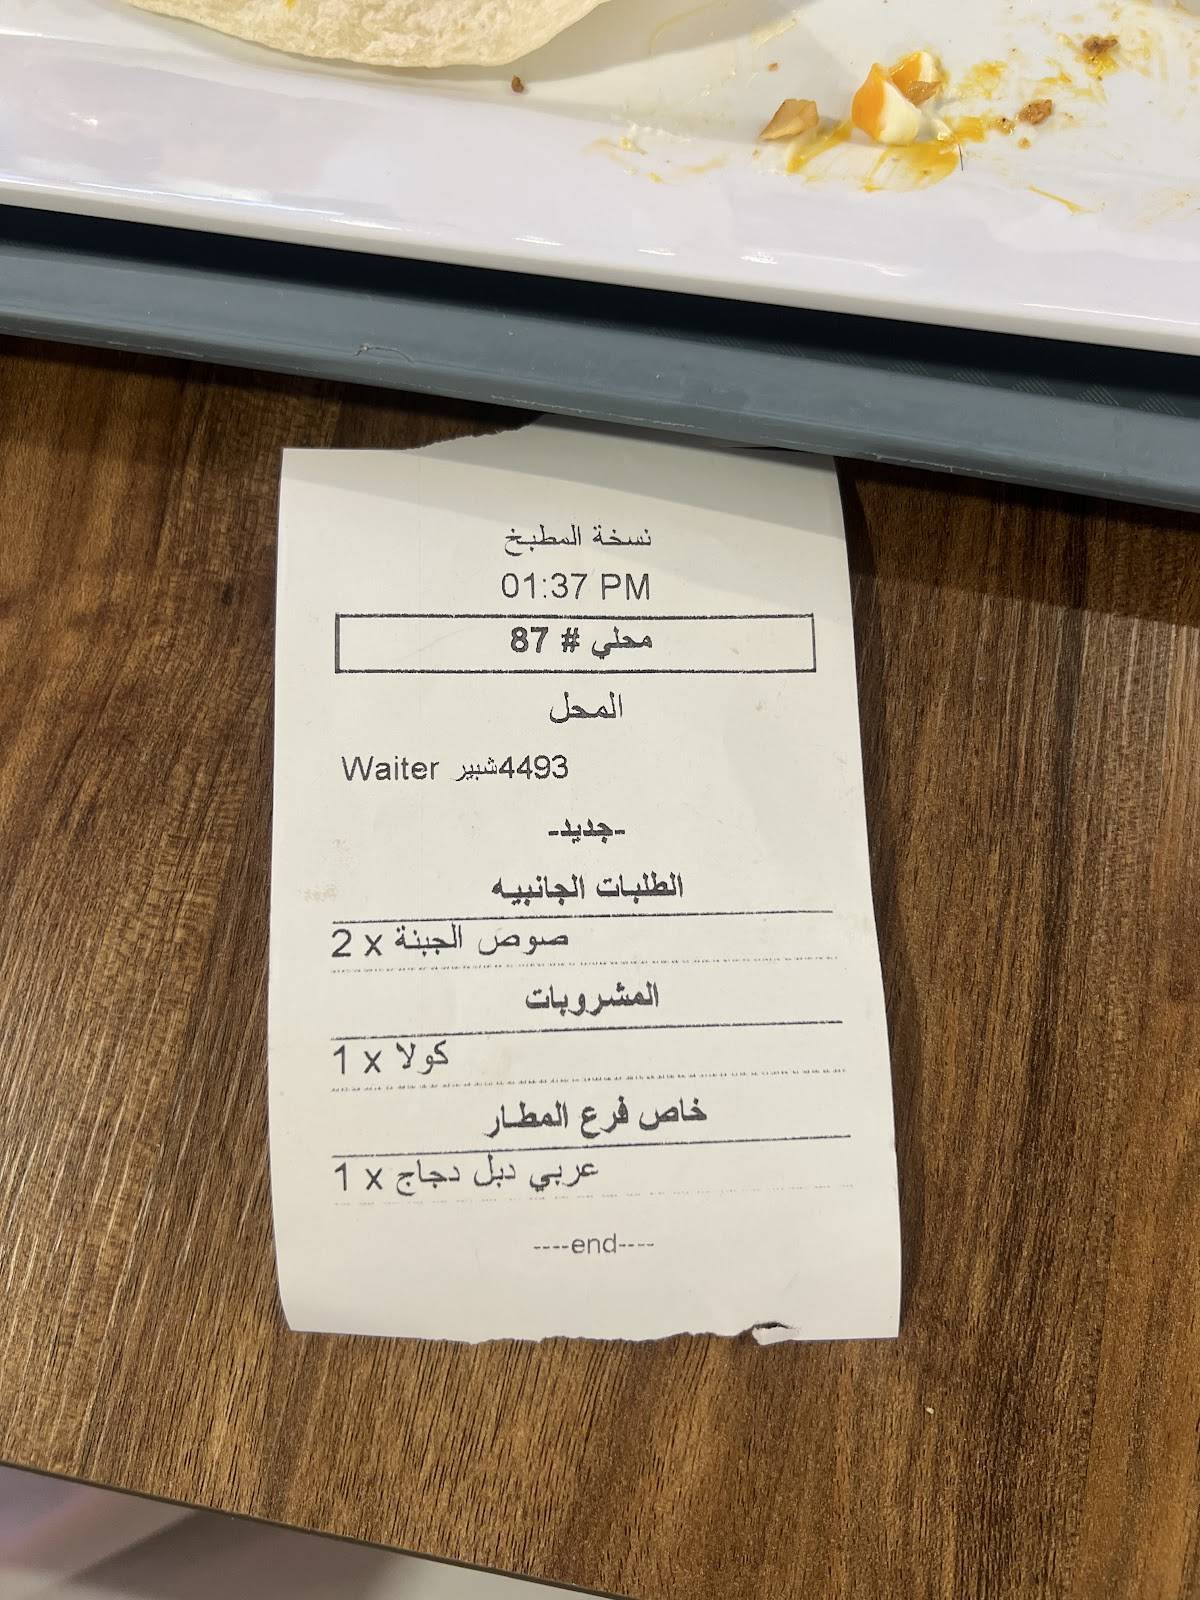 نسخة المطبخ
01:37 PM
محلي # 87
المحل
Waiter شبير4493
-جديد-
الطلبات الجانبيه
2 x صوص الجبنة
المشروبات
1 x كولا
خاص فرع المطار
1 x عربي دبل دجاج
----end----